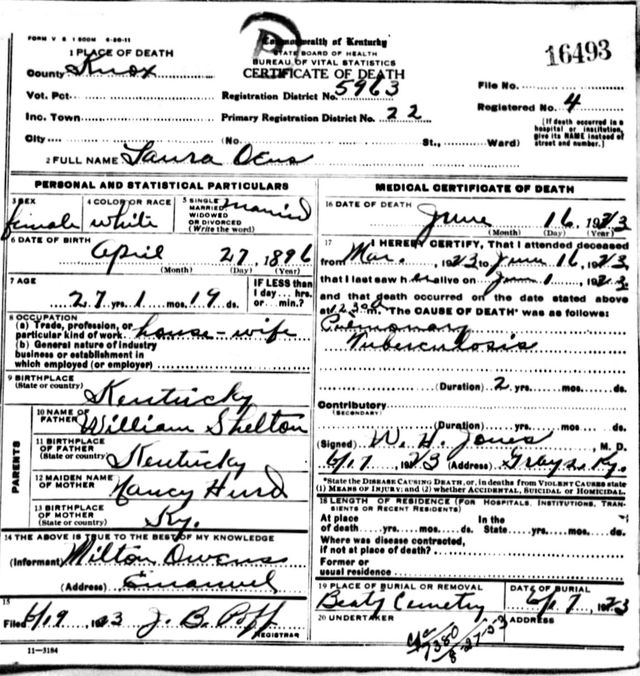 FORM V S 1 500M 6-20-11
1 PLACE OF DEATH
County Knox
Vot. Pct.
Inc. Town
City
Commonwealth of Kentucky
STATE BOARD OF HEALTH
BUREAU OF VITAL STATISTICS
CERTIFICATE OF DEATH
Registration District No. 5963
Primary Registration District No. 22
(No. St., Ward)
16493
File No.
Registered No. 4
(If death occurred in a
hospital or institution,
give its NAME instead of
street and number.)
2 FULL NAME Laura Oens
PERSONAL AND STATISTICAL PARTICULARS
3 SEX
female
4 COLOR OR RACE
white
5 SINGLE
MARRIED
WIDOWED
OR DIVORCED
(Write the word)
Married
6 DATE OF BIRTH
April 27, 1896
(Month) (Day) (Year)
7 AGE
27 yrs. 1 mos. 19 ds.
IF LESS than
1 day... hrs.
or... min.?
8 OCCUPATION
(a) Trade, profession, or
particular kind of work house-wife
(b) General nature of industry
business or establishment in
which employed (or employer)
9 BIRTHPLACE
(State or country)
Kentucky
PARENTS
10 NAME OF
FATHER
William Shelton
11 BIRTHPLACE
OF FATHER
(State or country)
Kentucky
12 MAIDEN NAME
OF MOTHER
Nancy Hurd
13 BIRTHPLACE
OF MOTHER
(State or country)
Ky.
14 THE ABOVE IS TRUE TO THE BEST OF MY KNOWLEDGE
(Informant) Milton Owens
(Address) Emanuel
15
Filed 6/19 1923 J. B. Poff
REGISTRAR
11-3184
MEDICAL CERTIFICATE OF DEATH
16 DATE OF DEATH
June 16, 1923
(Month) (Day) (Year)
17 I HEREBY CERTIFY, That I attended deceased
from Mar. 1923 to June 16, 1923
that I last saw her alive on June 1, 1923
and that death occurred on the date stated above
at 12.30 m. The CAUSE OF DEATH* was as follows:
Pulmonary
Tuberculosis
(Duration) 2 yrs. mos. ds.
Contributory
(SECONDARY)
(Duration) yrs. mos. ds.
(Signed) W. H. Jones, M. D.
6/17 1923 (Address) Grays, Ky.
*State the DISEASE CAUSING DEATH, or, in deaths from VIOLENT CAUSES state
(1) MEANS OF INJURY; and (2) whether ACCIDENTAL, SUICIDAL OR HOMICIDAL.
18 LENGTH OF RESIDENCE (FOR HOSPITALS, INSTITUTIONS, TRANSIENTS OR RECENT RESIDENTS)
At place
of death yrs. mos. ds.
In the
State yrs. mos. ds.
Where was disease contracted,
if not at place of death?
Former or
usual residence
19 PLACE OF BURIAL OR REMOVAL
Beaty Cemetry
DATE OF BURIAL
6/17, 1923
20 UNDERTAKER
ADDRESS
7380
8-27-53